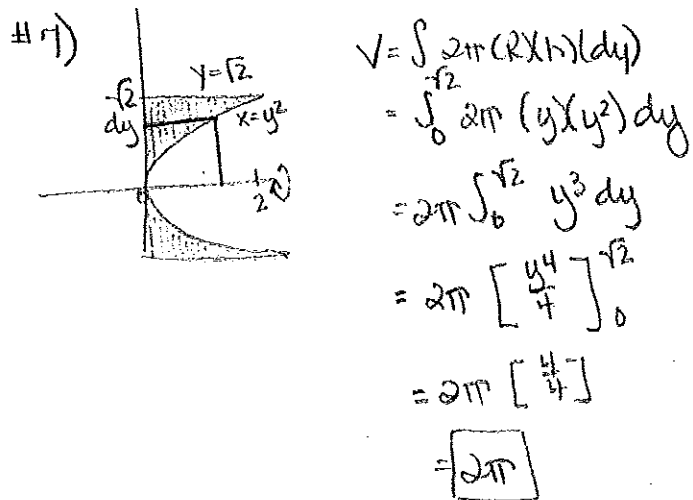 #7)
y=√2
√2
dy
x=y²
2
V=∫ 2π(R)(h)(dy)
=∫₀^√2 2π (y)(y²) dy
=2π ∫₀^√2 y³ dy
= 2π [y⁴/4]₀^√2
= 2π [4/4]
= 2π